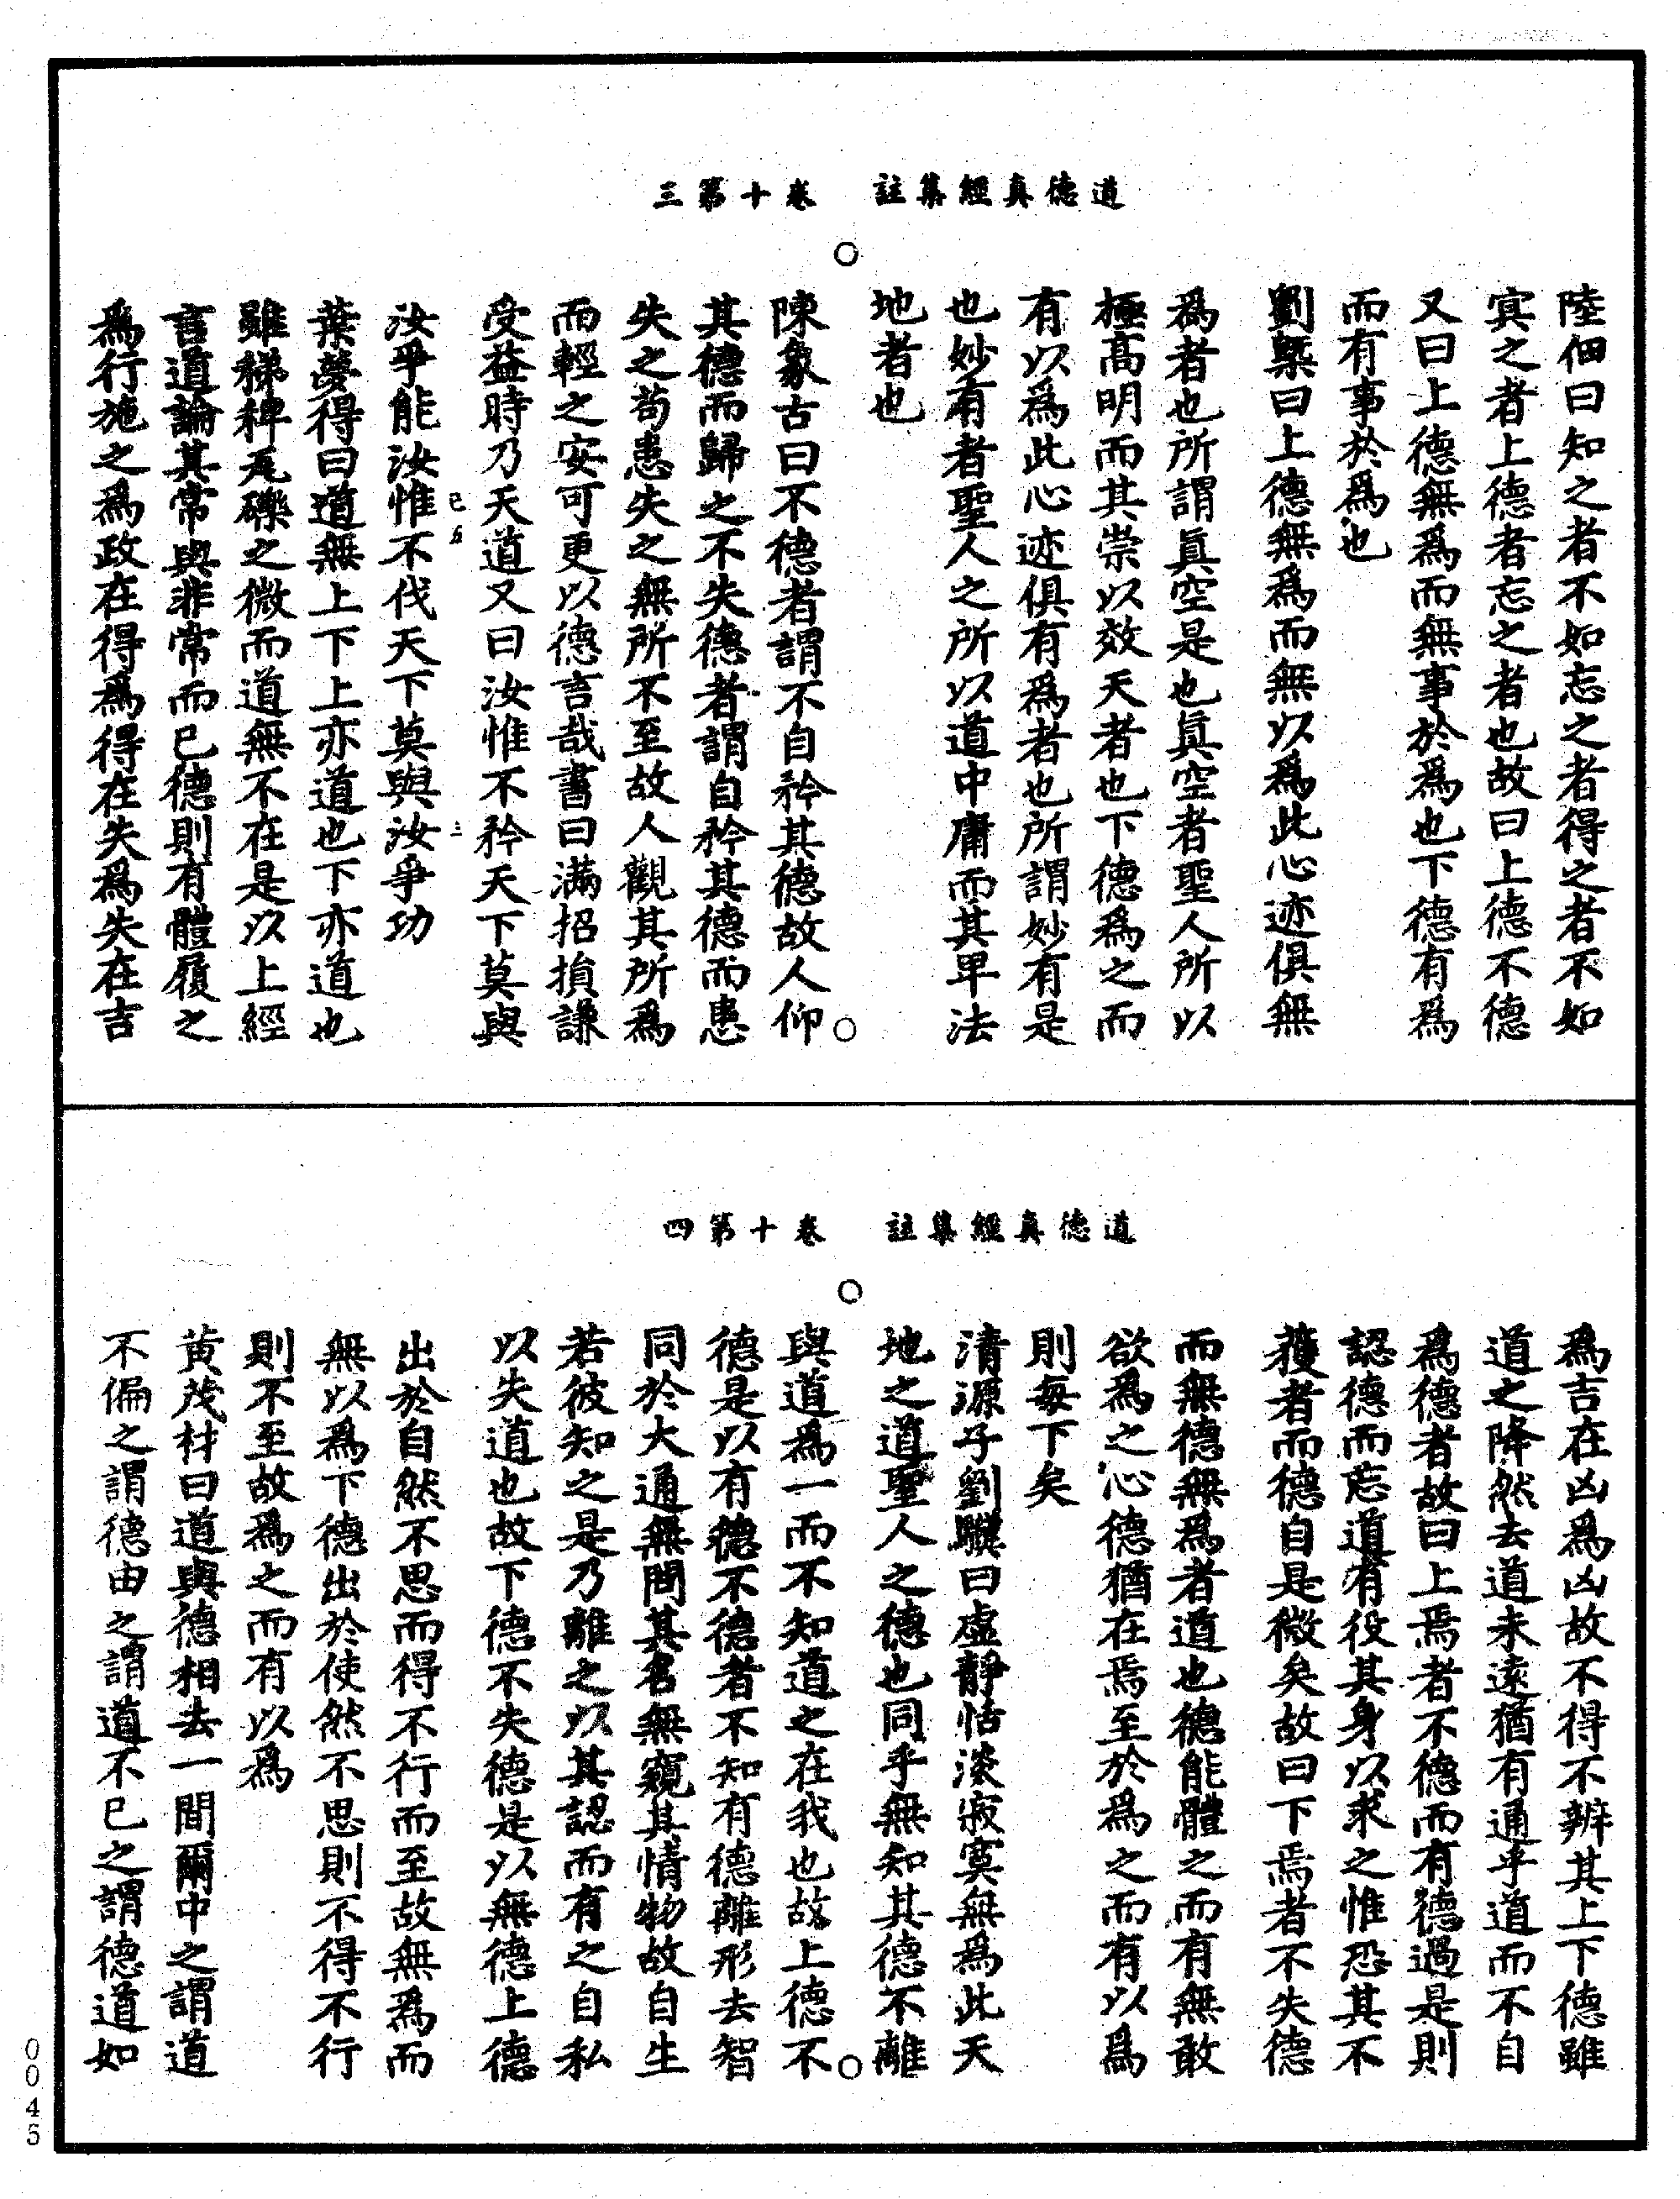 道德真經集註　卷十第三
陸佃曰知之者不如忘之者得之者不如
㝠之者上德者忘之者也故曰上德不德
又曰上德無爲而無事於爲也下德有爲
而有事於爲也
劉槩曰上德無爲而無以爲此心迹俱無
爲者也所謂眞空是也眞空者聖人所以
極高明而其崇以效天者也下德爲之而
有以爲此心迹俱有爲者也所謂妙有是
也妙有者聖人之所以道中庸而其卑法
地者也
陳象古曰不德者謂不自矜其德故人仰
其德而歸之不失德者謂自矜其德而患
失之苟患失之無所不至故人觀其所爲
而輕之安可更以德言哉書曰滿招損謙
受益時乃天道又曰汝惟不矜天下莫與
汝爭能汝惟不伐天下莫與汝爭功
葉夢得曰道無上下上亦道也下亦道也
雖稊稗瓦礫之微而道無不在是以上經
言道論其常與非常而已德則有體履之
爲行施之爲政在得爲得在失爲失在吉
道德真經集註　卷十第四
爲吉在凶爲凶故不得不辨其上下德雖
道之降然去道未遠猶有通乎道而不自
爲德者故曰上焉者不德而有德過是則
認德而忘道有役其身以求之惟恐其不
獲者而德自是微矣故曰下焉者不失德
而無德無爲者道也德能體之而有無敢
欲爲之心德猶在焉至於爲之而有以爲
則每下矣
清源子劉驥曰虛靜恬淡寂寞無爲此天
地之道聖人之德也同乎無知其德不離
與道爲一而不知道之在我也故上德不
德是以有德不德者不知有德離形去智
同於大通無問其名無窺其情物故自生
若彼知之是乃離之以其認而有之自私
以失道也故下德不失德是以無德上德
出於自然不思而得不行而至故無爲而
無以爲下德出於使然不思則不得不行
則不至故爲之而有以爲
黄茂材曰道與德相去一間爾中之謂道
不偏之謂德由之謂道不已之謂德道如
0045